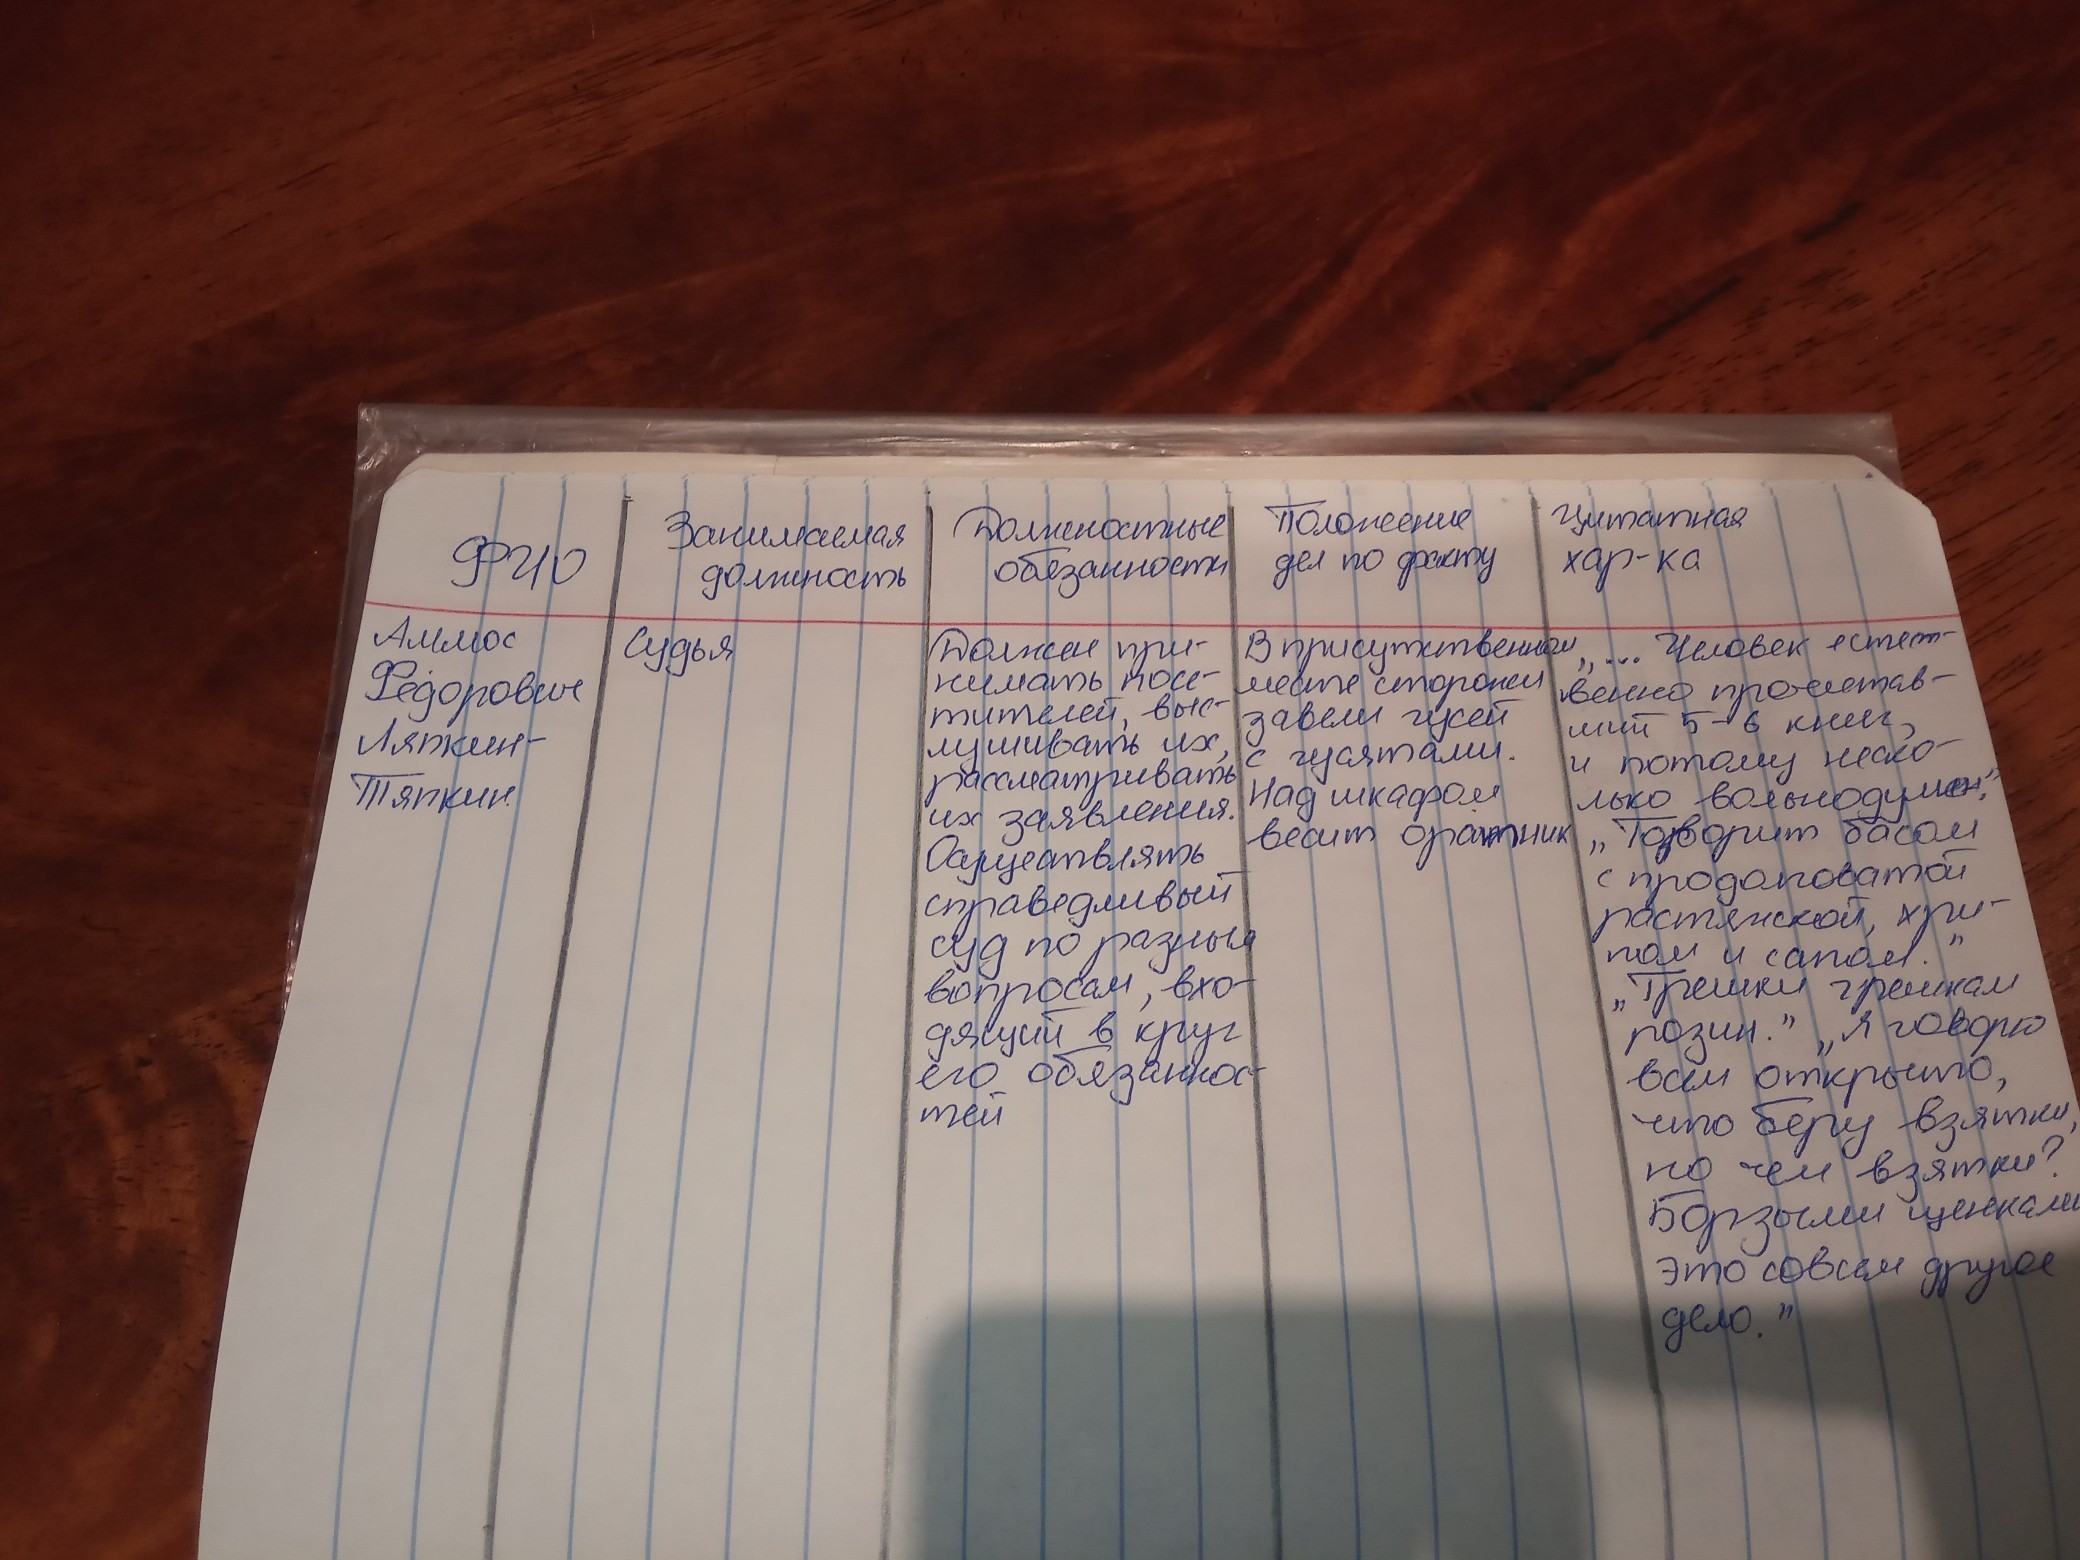 ФИО
Занимаемая
должность
Должностные
обязанности
Положение
дел по факту
Цитатная
хар-ка
Аммос
Фёдорович
Ляпкин-
Тяпкин.
Судья
Должен при-
нимать посе-
тителей, выс-
лушивать их,
рассматривать
их заявления.
Осуществлять
справедливый
суд по разным
вопросам, вхо-
дящий в круг
его обязаннос-
тей
В присутственном
месте сторожи
завели гусей
с гусятами.
Над шкафом
весит арапник
„... Человек естест-
венно прочитав-
ший 5-6 книг,
и потому неско-
лько вольнодумен."
„Говорит басом
с продолговатой
растяжкой, хри-
пом и сапом."
„Грешки грешкам
розин." „Я говорю
вам открыто,
что беру взятки,
но чем взятки?
Борзыми щенками
это совсем другое
дело."